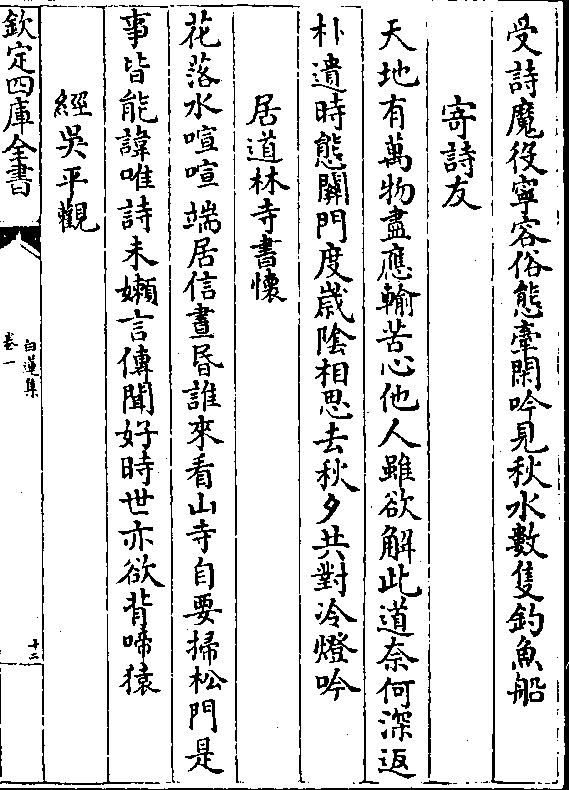 受詩魔役寧容俗態牽閑吟見秋水數隻釣魚船
寄詩友
天地有萬物盡應輸苦心他人雖欲解此道奈何深返
朴遺時態關門度歲陰相思去秋夕共對冷燈吟
居道林寺書懷
花落水喧喧端居信晝昏誰來看山寺自要掃松門是
事皆能諱唯詩未嬾言傳聞好時世亦欲背啼猿
經吳平觀
欽定四庫全書
白蓮集
卷一
十二